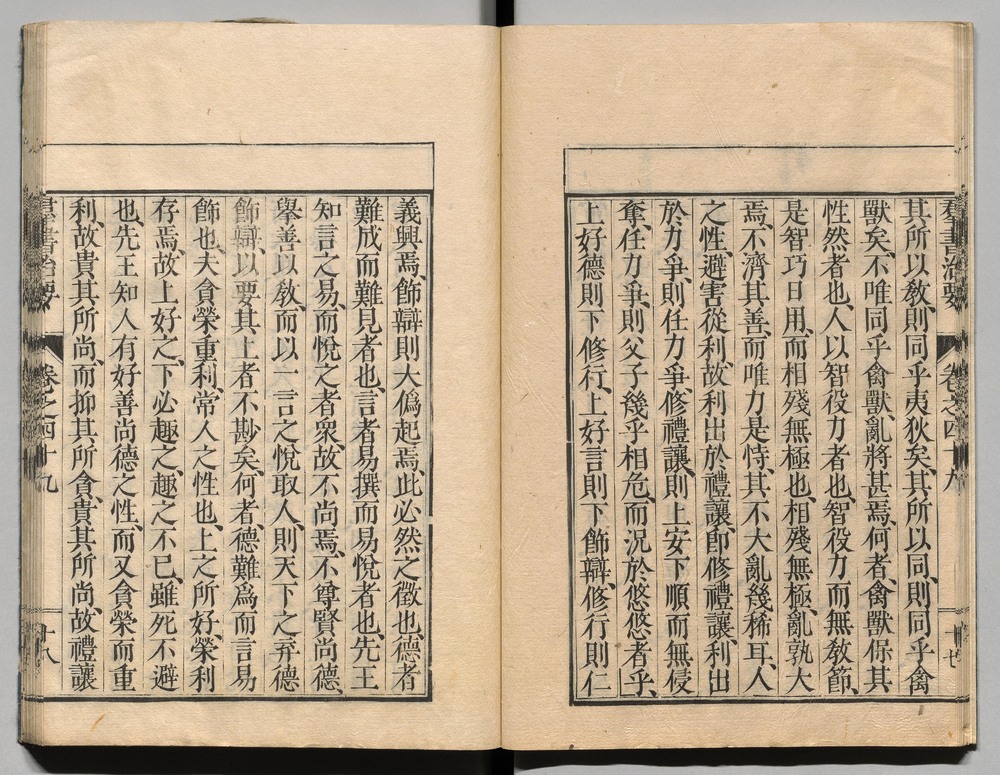 羣書治要 卷之四十九 十七
其所以教、則同乎夷狄矣、其所以同、則同乎禽
獸矣、不唯同乎禽獸、亂將甚焉、何者、禽獸保其
性然者也、人以智役力者也、智役力而無教節、
是智巧日用、而相殘無極也、相殘無極、亂孰大
焉、不濟其善、而唯力是恃、其不大亂幾稀耳、人
之性、避害從利、故利出於禮讓、卽修禮讓、利出
於力爭、則任力爭、修禮讓、則上安下順而無侵
奪、任力爭、則父子幾乎相危、而況於悠悠者乎、
上好德則下修行、上好言則下飾辯、修行則仁
義興焉、飾辯則大僞起焉、此必然之徵也、德者
難成而難見者也、言者易撰而易悅者也、先王
知言之易、而悅之者衆、故不尚焉、不尊賢尚德、
舉善以教、而以一言之悅取人、則天下之弃德
飾辯、以要其上者不尠矣、何者、德難爲而言易
飾也、夫貪榮重利、常人之性也、上之所好、榮利
存焉、故上好之、下必趣之、趣之不已、雖死不避
也、先王知人有好善尚德之性、而又貪榮而重
利、故貴其所尚、而抑其所貪、貴其所尚、故禮讓
羣書治要 卷之四十九 十八